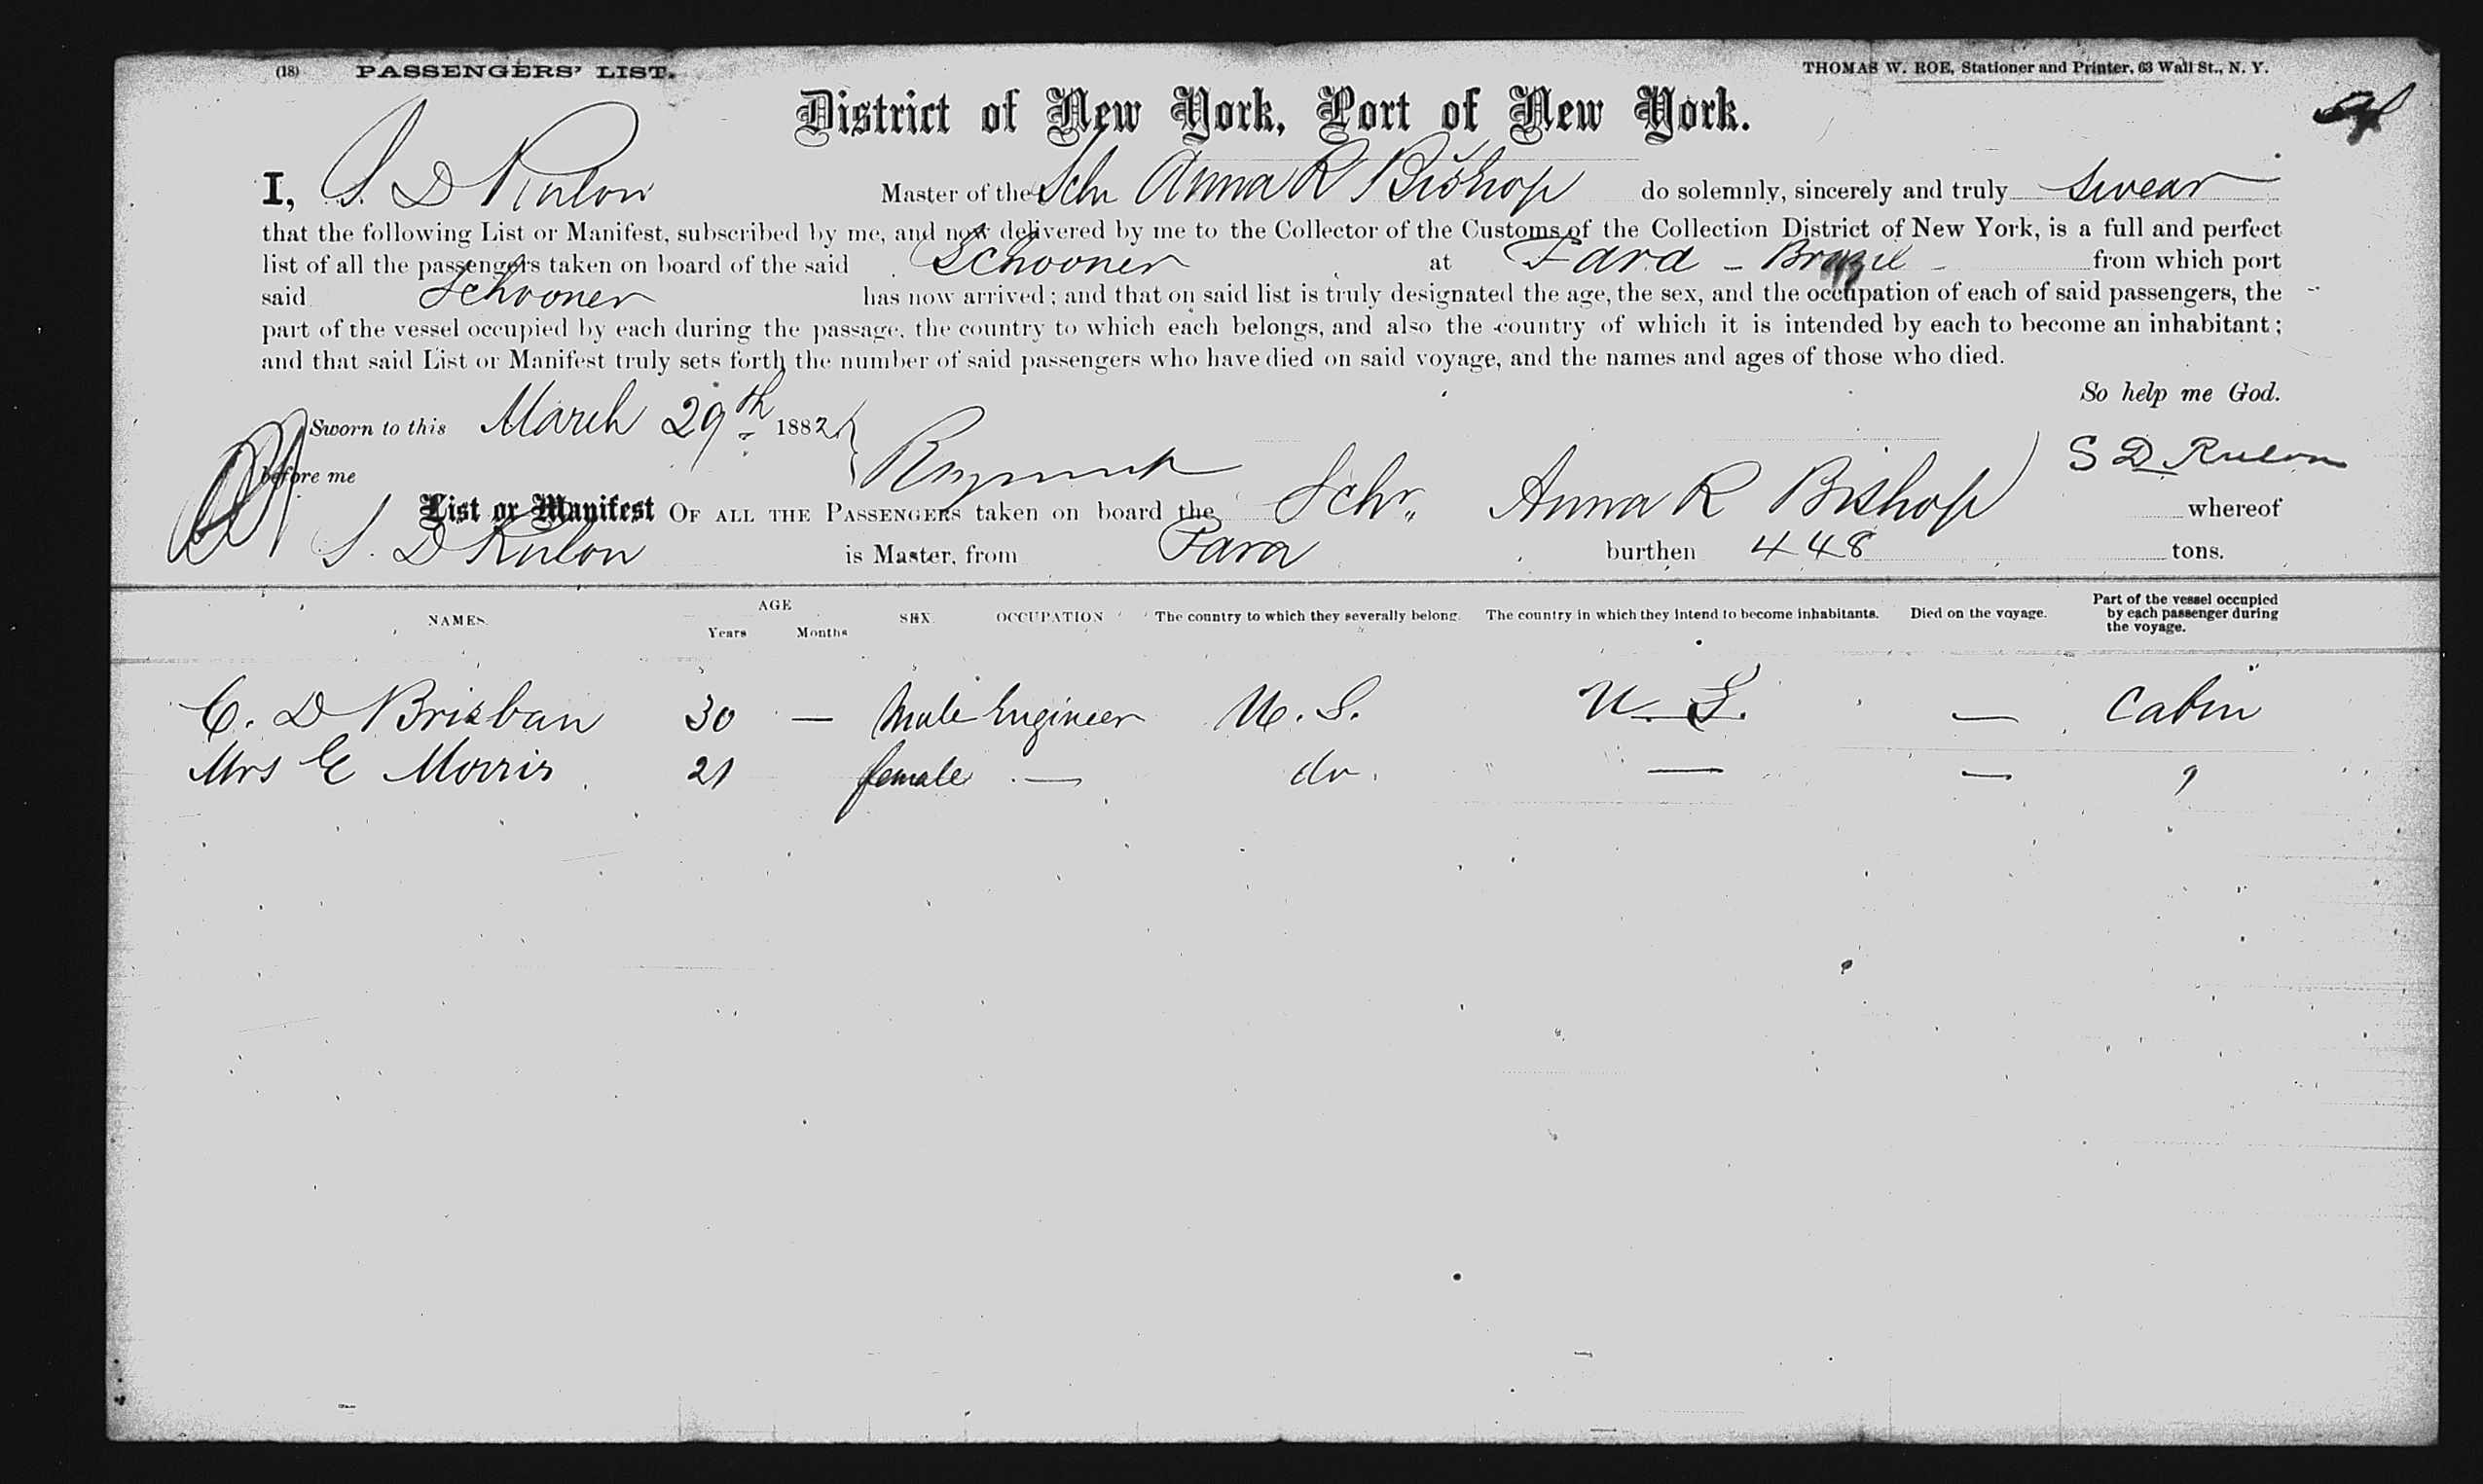 (18) PASSENGERS' LIST. THOMAS W. ROE, Stationer and Printer, 63 Wall St., N. Y.
District of New York, Port of New York.
I, S. D Rulon Master of the Schr Anna R Bishop do solemnly, sincerely and truly swear
that the following List or Manifest, subscribed by me, and now delivered by me to the Collector of the Customs of the Collection District of New York, is a full and perfect
list of all the passengers taken on board of the said Schooner at Para - Brazil - from which port
said Schooner has now arrived; and that on said list is truly designated the age, the sex, and the occupation of each of said passengers, the
part of the vessel occupied by each during the passage, the country to which each belongs, and also the country of which it is intended by each to become an inhabitant;
and that said List or Manifest truly sets forth the number of said passengers who have died on said voyage, and the names and ages of those who died.
So help me God.
Sworn to this March 29th 1882
S D Rulon
before me
List or Manifest OF ALL THE PASSENGERS taken on board the Schr. Anna R Bishop whereof
S. D Rulon is Master, from Para burthen 448 tons.
NAMES. AGE Years Months SEX. OCCUPATION The country to which they severally belong. The country in which they intend to become inhabitants. Died on the voyage. Part of the vessel occupied by each passenger during the voyage.
C. D Brisban 30 — Male Engineer U. S. U. S. — Cabin
Mrs E Morris 21 female — do. — — "